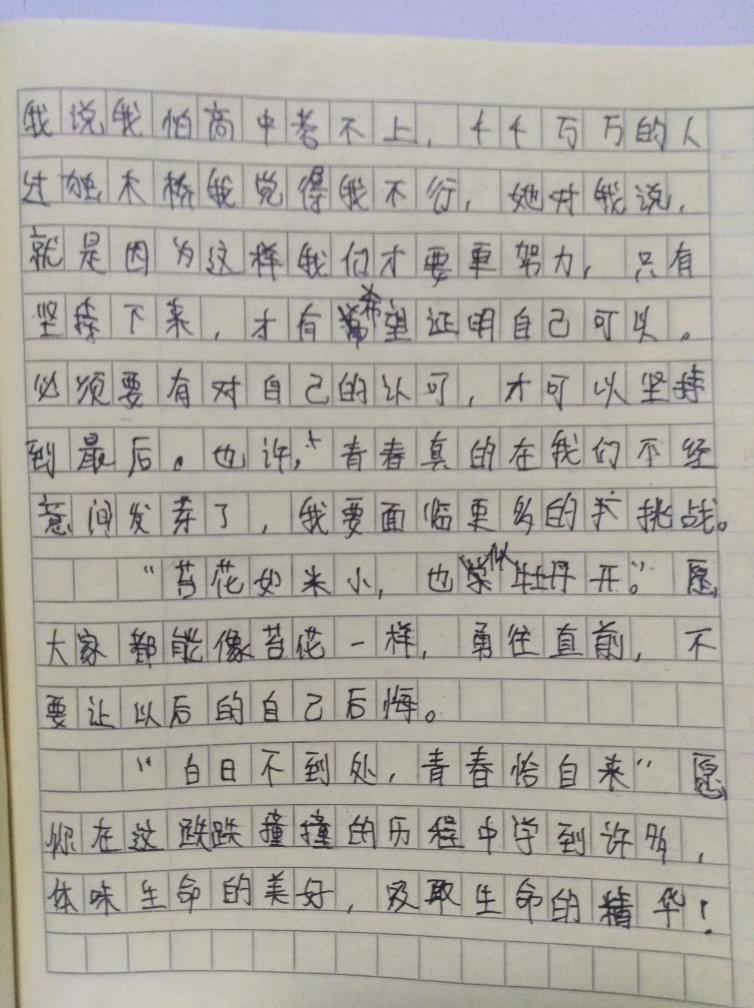 我说我怕高中考不上，千千万万的人
过独木桥我觉得我不行，她对我说，
就是因为这样我们才要更努力，只有
坚持下来，才有希望证明自己可以。
必须要有对自己的认可，才可以坚持
到最后。也许，青春真的在我们不经
意间发芽了，我要面临更多的挑战。
“苔花如米小，也似牡丹开。”愿
大家都能像苔花一样，勇往直前，不
要让以后的自己后悔。
“白日不到处，青春恰自来”愿
你在这跌跌撞撞的历程中学到许多，
体味生命的美好，汲取生命的精华！